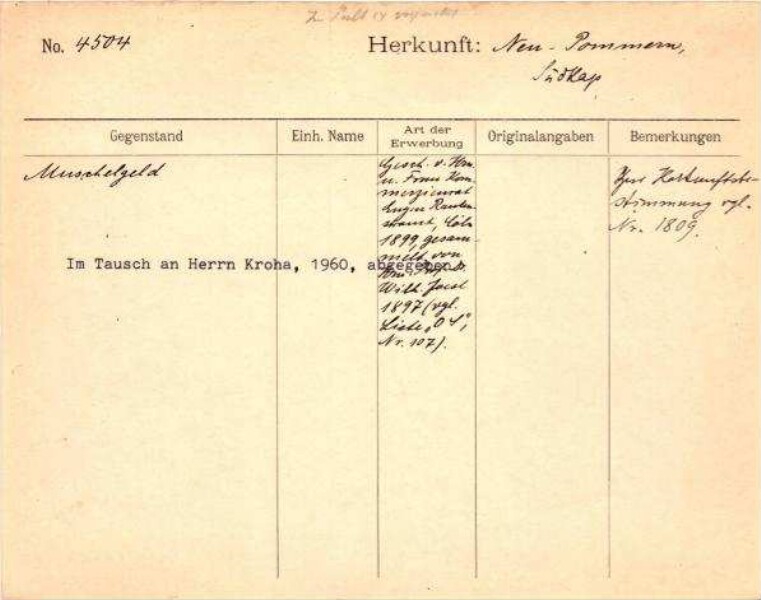 No. 4504
Herkunft: Neu-Pommern,
Südkap
Gegenstand
Einh. Name
Art der
Erwerbung
Originalangaben
Bemerkungen
Muschelgeld
Gesch. v. Hrn.
u. Frau Kom-
merzienrat
Eugen Rauten-
strauch, Cöln
1899, gesam-
melt von
Hrn. Prof. Dr.
Wilh. Joest
1897 (vgl.
Liste „O I“,
Nr. 107).
Zur Herkunftsbe-
stimmung vgl.
Nr. 1809.
Im Tausch an Herrn Kroha, 1960, abgegeben.